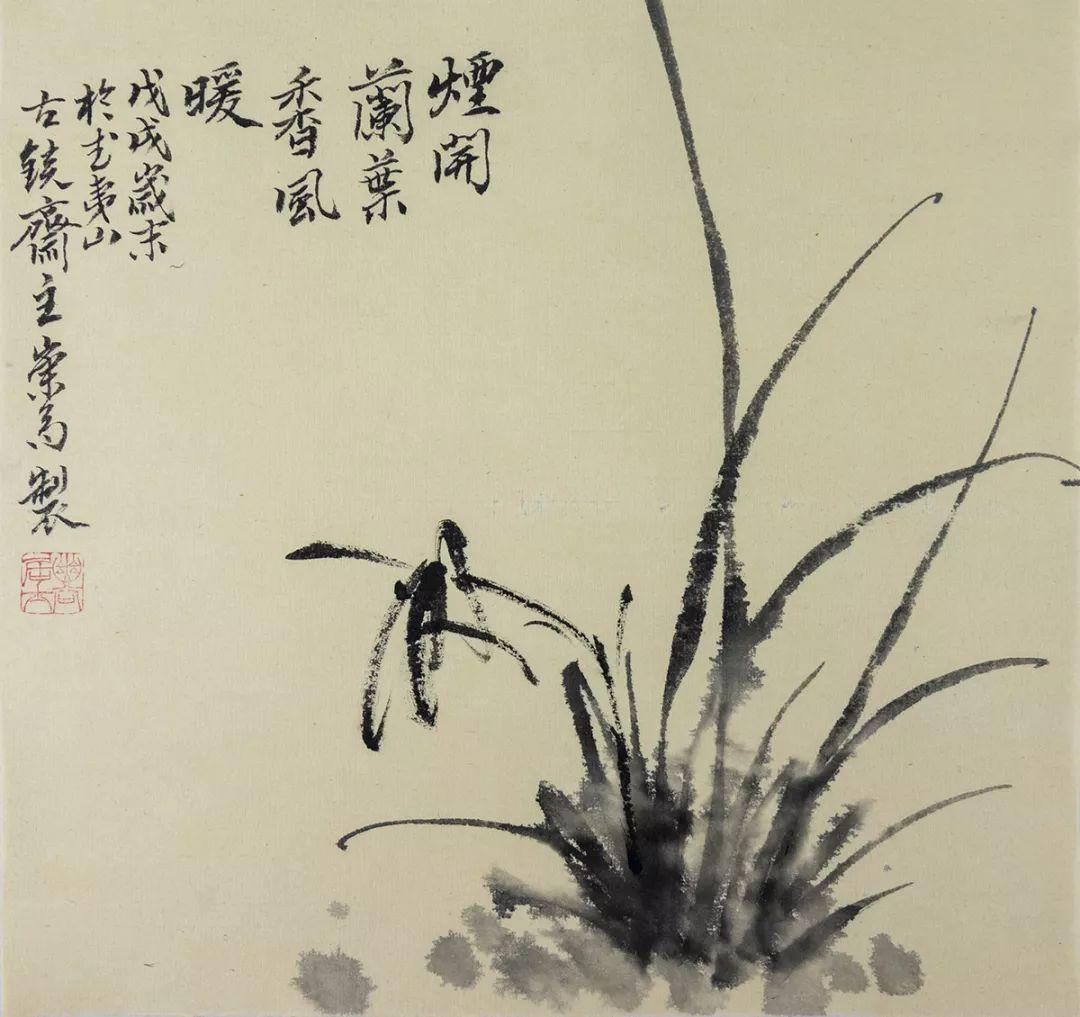 煙開
蘭葉
香風
暖
戊戌嵗末
於武夷山
古鏡齋主崇高製